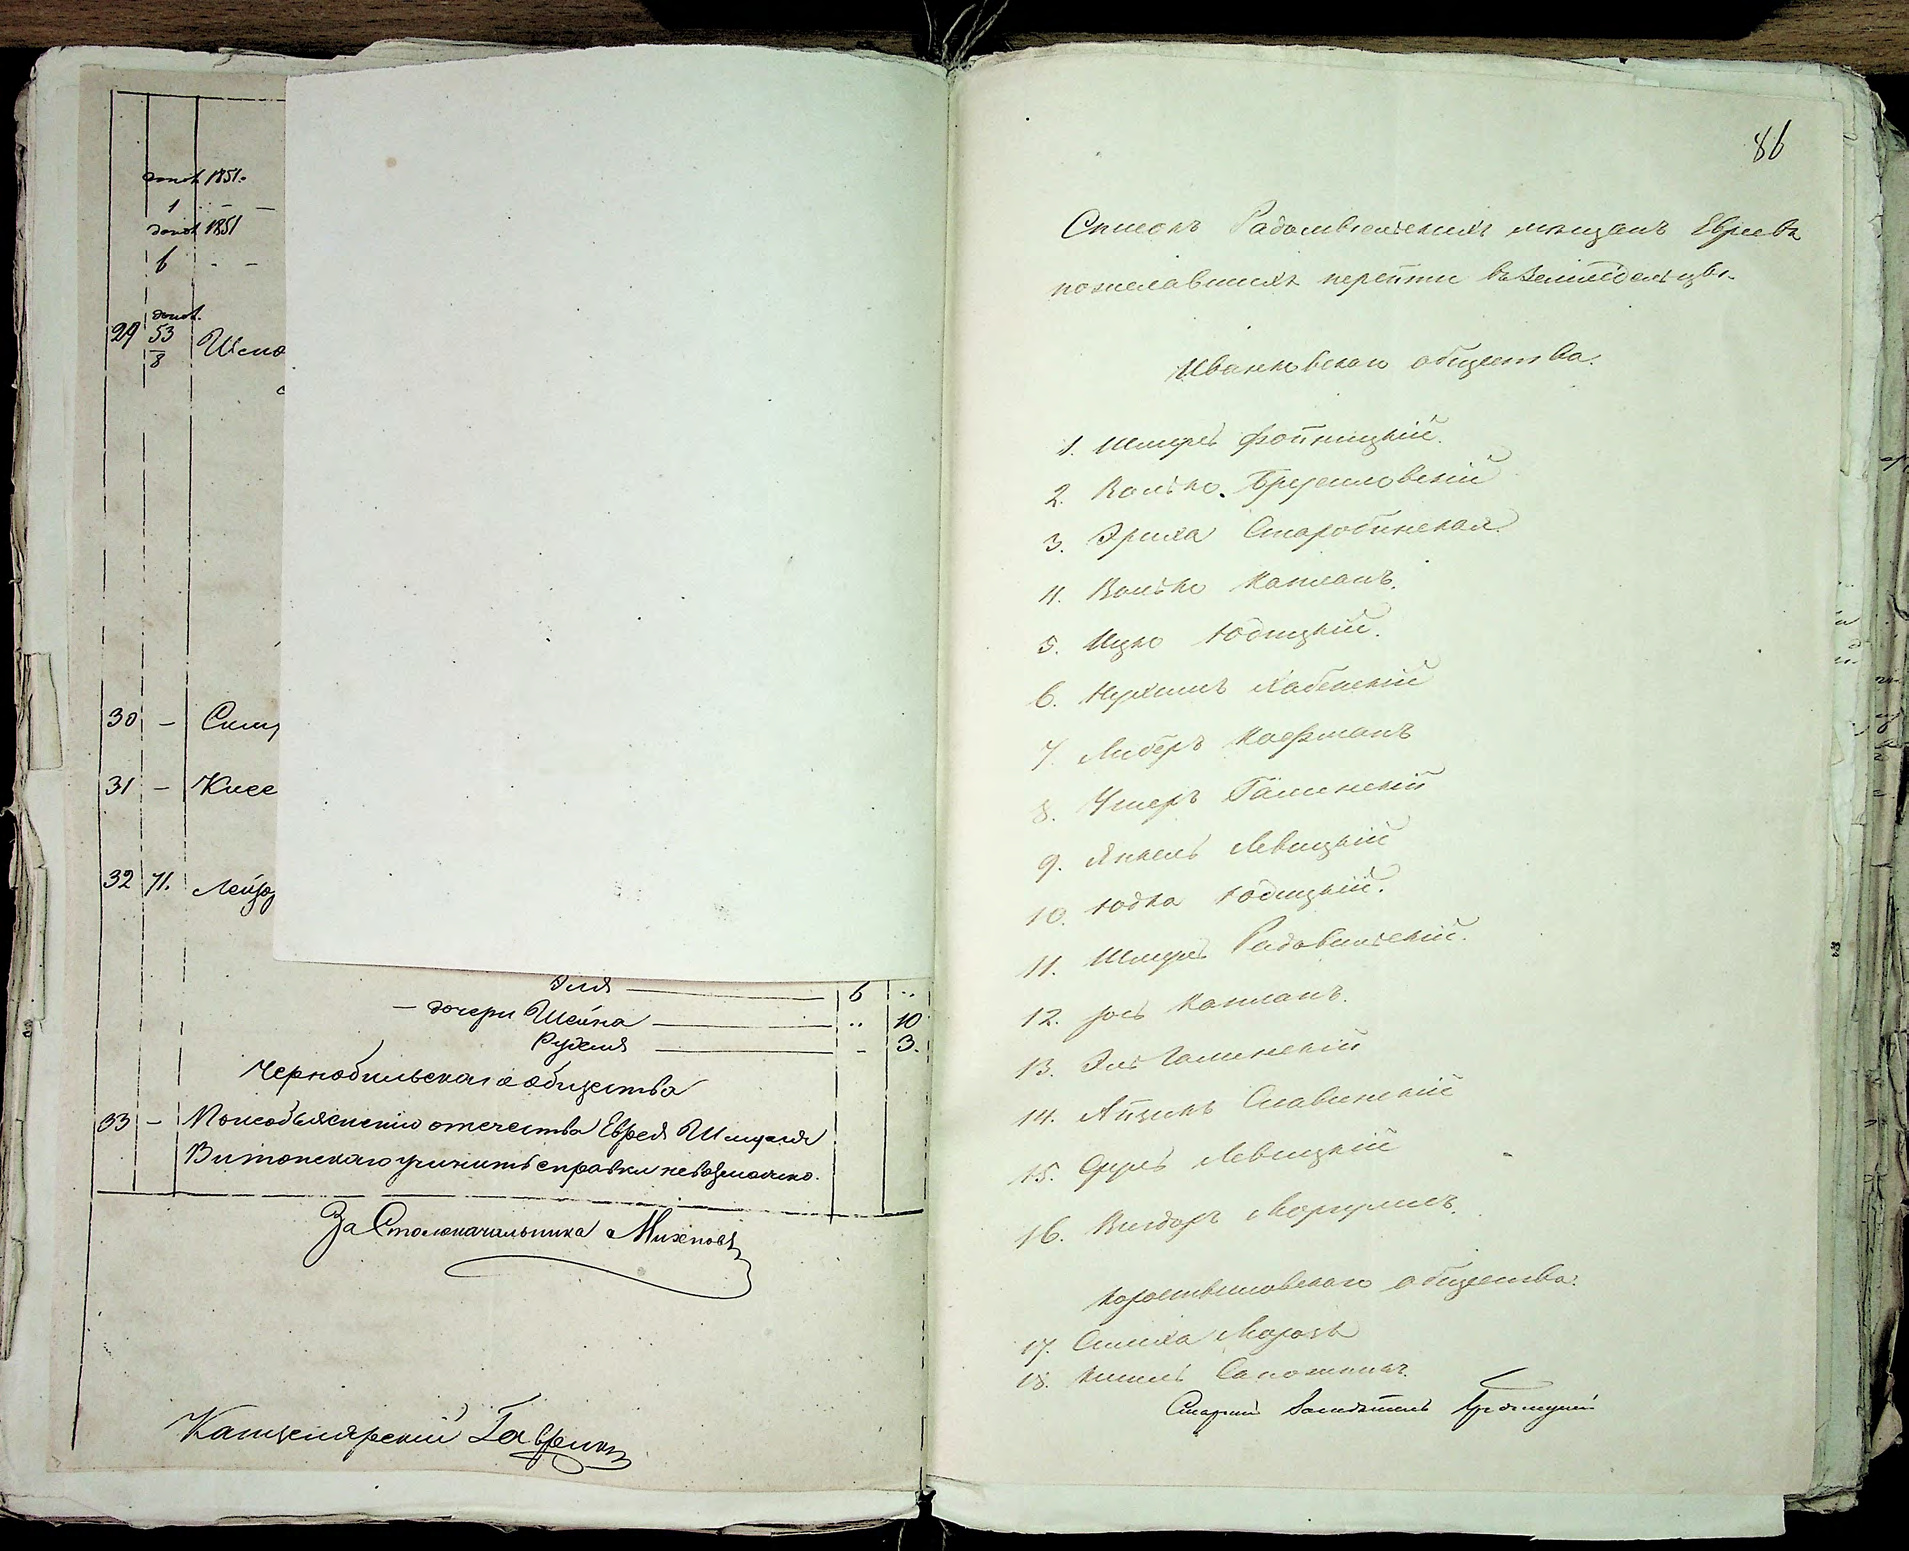 допол. 1851.
1 - -
допол 1851
6 - -
допол.
29 53/8 Шепо
30 - Сему
31 - Кисе
32 71. Лейзо
Эля 6 ..
- дочери Шейна .. 10
Рухля - 3.
Чернобыльскаго общества
33 - По необъясненію отечества Еврея Шмуля
Витонскаго учинить справки невозможно.
За Столоначальника Михновъ
Канцелярскій Гаврик
86
Списокъ Радомысльскихъ мещанъ Евреевъ
пожелавшихъ перейти въ Земледельцы.
Иванковскаго общества.
1. Шмуль Фойницкій.
2. Волько Брусиловскій
3. Фрима Старобинская
4. Волько Капланъ.
5. Ицко Юдицкій.
6. Нухимъ Хабенскій
7. Либеръ Кофманъ
8. Ушеръ Галинскій
9. Янкель Левицкій
10. Юдка Юдицкій.
11. Шмуль Радовильскій.
12. Іось Капланъ.
13. Эль Галинскій
14. Айзикъ Славинскій
15. Сруль Левицкій
16. Вигдоръ Маргулисъ.
Коростышовскаго общества.
17. Симха Морозъ
18. Кисиль Сапожникъ.
Старшій Засѣдатель